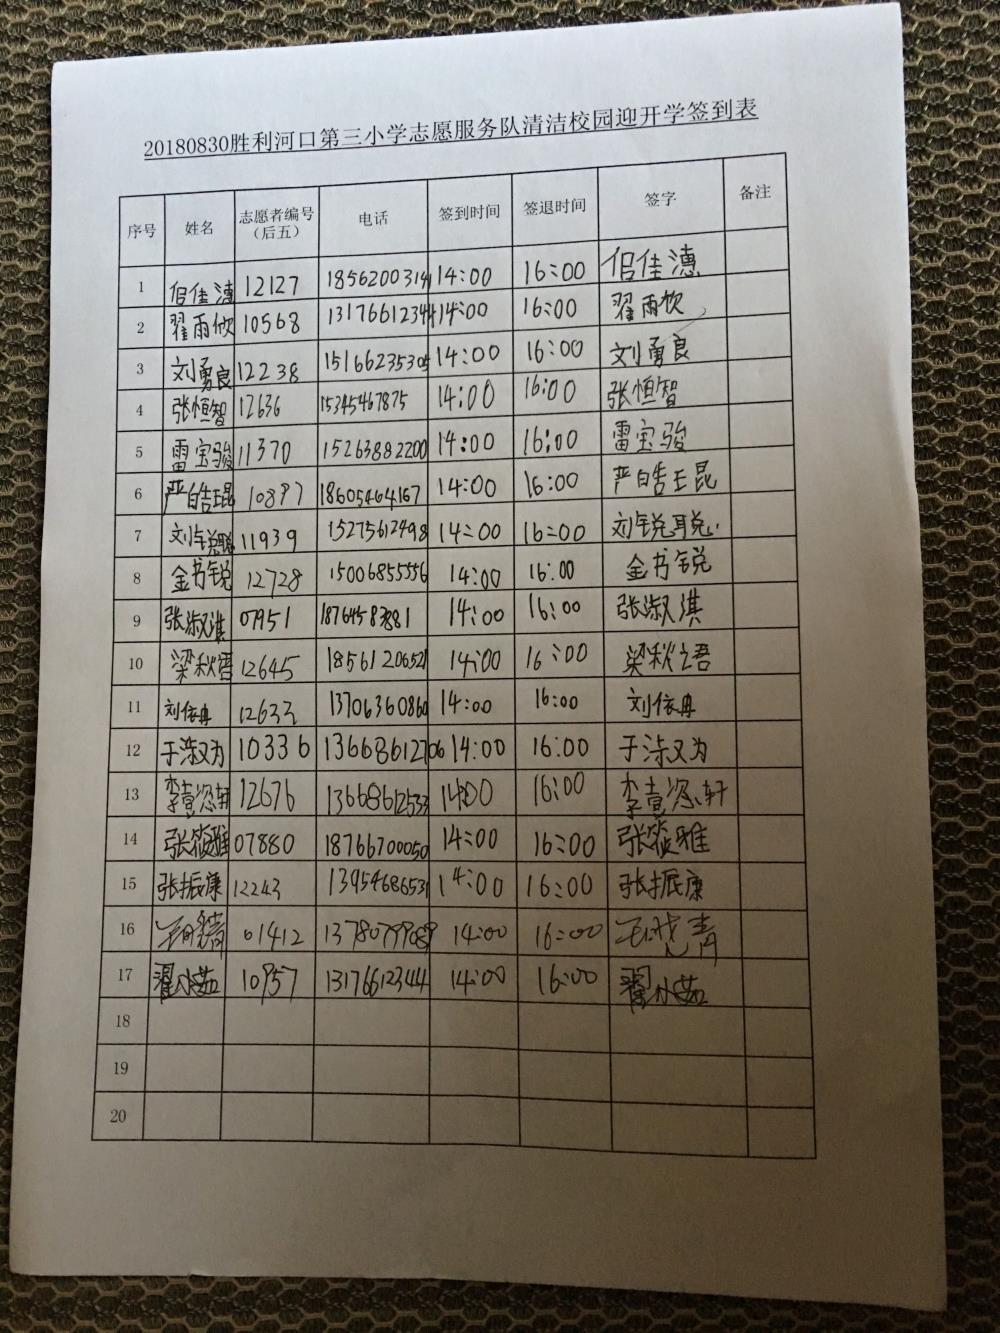 20180830胜利河口第三小学志愿服务队清洁校园迎开学签到表
序号 姓名 志愿者编号（后五） 电话 签到时间 签退时间 签字 备注
1 12127 14:00 16:00
2 翟雨欣 10568 13176612344 14:00 16:00 翟雨欣
3 刘勇良 12238 15166235305 14:00 16:00 刘勇良
4 张恒智 12636 15345467875 14:00 16:00 张恒智
5 雷宝骏 11370 15263882200 14:00 16:00 雷宝骏
6 严皓琨 10897 18605464167 14:00 16:00 严皓琨
7 11939 15275612498 14:00 16:00
8 金书锐 12728 15006855556 14:00 16:00 金书锐
9 张淑淇 07951 18764583881 14:00 16:00 张淑淇
10 梁秋语 12645 18561206521 14:00 16:00 梁秋语
11 刘依冉 12633 13706360860 14:00 16:00 刘依冉
12 10336 13668612706 14:00 16:00
13 12676 13668612533 14:00 16:00
14 张筱雅 07880 18766700050 14:00 16:00 张筱雅
15 张振康 12243 13954686531 14:00 16:00 张振康
16 01412 14:00 16:00
17 翟小茹 10957 13176612344 14:00 16:00 翟小茹
18
19
20